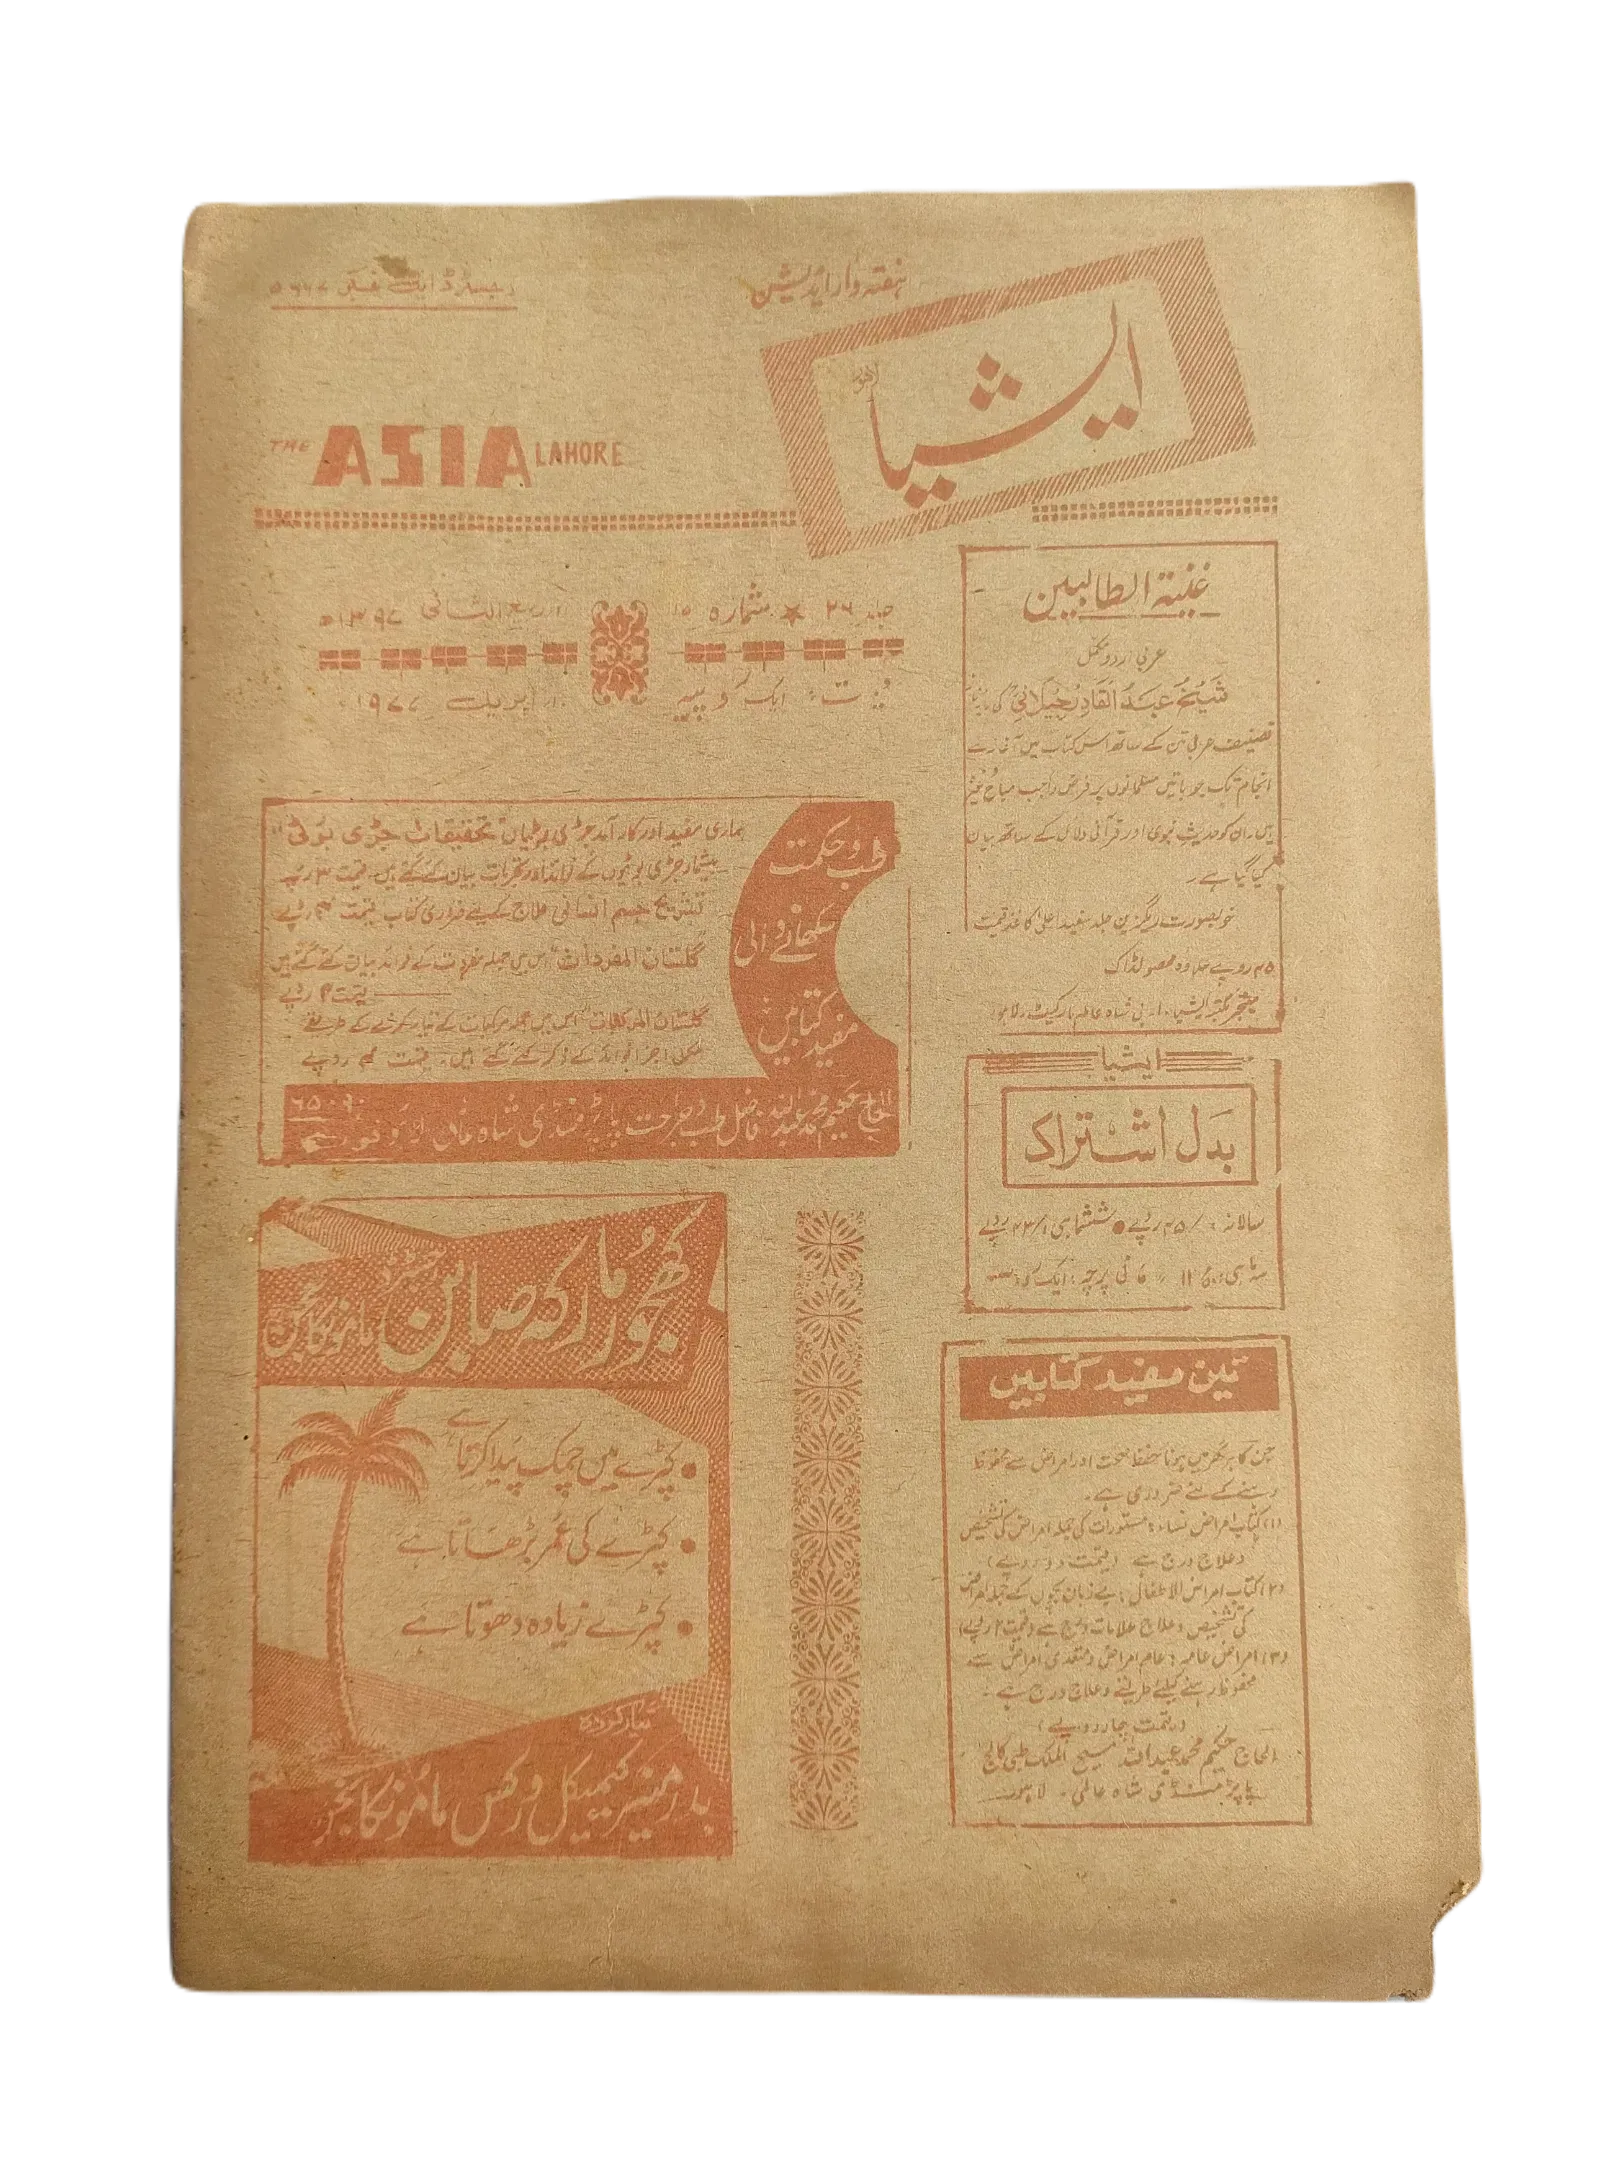 ہفتہ وار ایڈیشن
ایشیا
لاہور
رجسٹرڈ ایل نمبر ۵۶۶۷
THE ASIA LAHORE
جلد ۲۶ ★ شمارہ ۱۵
ربیع الثانی ۱۳۹۷ھ
قیمت ایک روپیہ
اپریل ۱۹۷۷
غنیۃ الطالبین
عربی اردو مکمل
شیخ عبدالقادر جیلانیؒ کی مایہ ناز
تصنیف عربی متن کے ساتھ اس کتاب میں آغاز سے
انجام تک جو باتیں مسلمانوں پر فرض واجب مباح
ہیں ان کو حدیث نبوی اور قرآنی دلائل کے ساتھ بیان
کیا گیا ہے۔
خوبصورت رنگزین جلد سفید اعلیٰ کاغذ قیمت
۴۵ روپے علاوہ محصولڈاک
منیجر مکتبہ ایشیا۔ شاہ عالم مارکیٹ۔ لاہور
طب و حکمت
سکھانے والی
مفید کتابیں
ہماری مفید اور کار آمد جڑی بوٹیاں "تحقیقات جڑی بوٹی"
بیشمار جڑی بوٹیوں کے فوائد اور تجربات بیان کئے گئے ہیں۔ قیمت ۳ روپے
تشریح جسم انسانی علاج کیلئے ضروری کتاب قیمت ۴ روپے
گلستان المفردات "اس میں جملہ مفردات کے فوائد بیان کئے گئے ہیں
قیمت ۴ روپے
گلستان المرکبات "اس میں جملہ مرکبات کے تیار کرنے کے طریقے
مکمل اجزا فوائد کے ذکر کئے گئے ہیں۔ قیمت ۴ روپے
الحاج حکیم محمد عبداللہ فاضل طب و جراحت پاپڑ منڈی شاہ عالمی لاہور
۶۵۰۹۰
ایشیا
بدل اشتراک
سالانہ ۴۵/۰ روپے ● ششماہی ۲۳/۰ روپے
سہ ماہی فی پرچہ: ایک روپیہ
کھجور مارکہ صابن
ماموں کانجن
● کپڑے میں چمک پیدا کرتا ہے
● کپڑے کی عمر بڑھاتا ہے
● کپڑے زیادہ دھوتا ہے
تیار کردہ
کیمیکل ورکس ماموں کانجن
تین مفید کتابیں
جن کا ہر گھر میں ہونا حفظ صحت اور امراض سے محفوظ
رہنے کے لئے ضروری ہے۔
(۱) کتاب امراض نساء: مستورات کی جملہ امراض کی تشخیص
و علاج درج ہے (قیمت دو روپے)
(۲) کتاب امراض الاطفال: بے زبان بچوں کے جملہ امراض
کی تشخیص و علاج علامات درج ہے (قیمت ۲ روپے)
(۳) امراض عامہ: عام امراض و متعدی امراض سے
محفوظ رہنے کیلئے طریقے و علاج درج ہے۔
(قیمت چار روپے)
الحاج حکیم محمد عبداللہ مسیح الملک طبی کالج
پاپڑ منڈی شاہ عالمی۔ لاہور